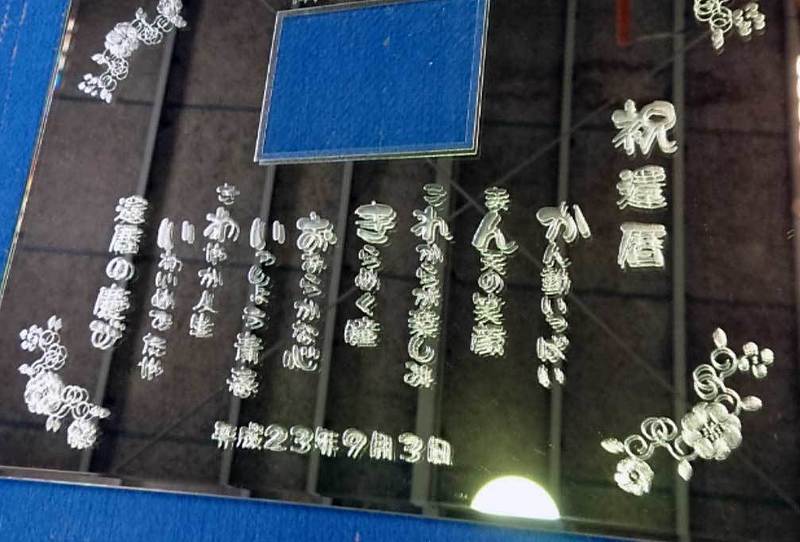 祝還暦
かん動いっぱい
まん天の笑顔
これからが楽しみ
きらめく瞳
おおらかな心
いっしょう青春
さわやか人生
還暦の慶び
平成23年9月3日